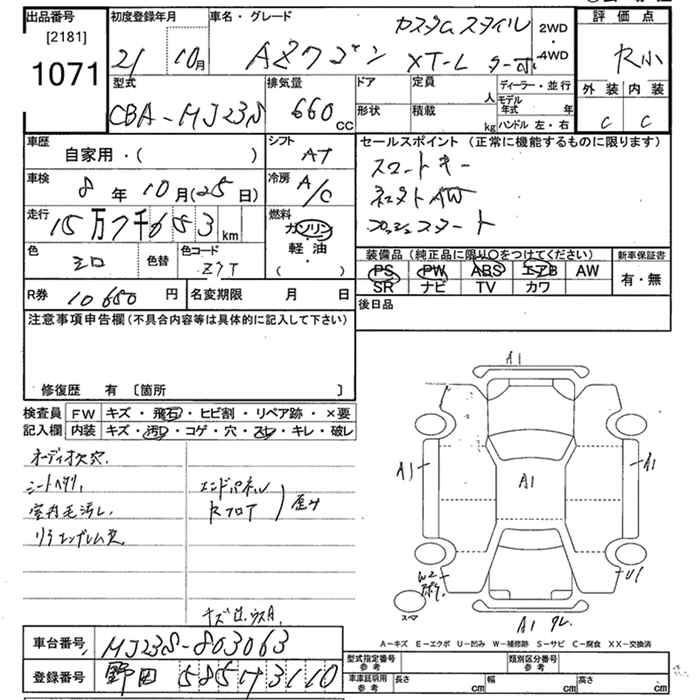 出品番号 初度登録年月 車名・グレード カスタムスタイル 2WD 評価点
[2181] 21 10月 AZワゴン XT-L ターボ ・4WD R小
1071 型式 排気量 ドア 定員 人 ディーラー・並行 外装 内装
CBA-MJ23S 660 CC 形状 積載 kg モデル年式 年 C C
ハンドル 左・右
車歴 自家用・( ) シフト AT セールスポイント (正常に機能するものに限ります)
車検 8年10月(25日) 冷房 A/C スマートキー
走行 15万7千653km 燃料 ガソリン・軽油・( ) AW
プッシュスタート
色 シロ 色替 色コード Z7T 装備品(純正品に限り○をつけてください) 新車保証書
PS PW ABS エアB AW 有・無
SR ナビ TV カワ
R券 10650円 名変期限 月 日 後日品
注意事項申告欄(不具合内容等は具体的に記入して下さい)
修復歴 有 〔箇所 〕
検査員 FW キズ・飛石・ヒビ割・リペア跡・×要
記入欄 内装 キズ・汚レ・コゲ・穴・スレ・キレ・破レ
オーディオ欠穴.
シートヘタリ, エンドパネル
室内毛汚レ. RフロT 歪み
リヤエンブレム欠
A1
A1 A1 A1
W2 U1
スペア A1
A-キズ E-エクボ U-凹み W-補修跡 S-サビ C-腐食 XX-交換済
車台番号 MJ23S-803063 型式指定番号 参考 類別区分番号 参考
登録番号 野田 585 3110 車庫証明用 参考 長さ cm 幅 cm 高さ cm